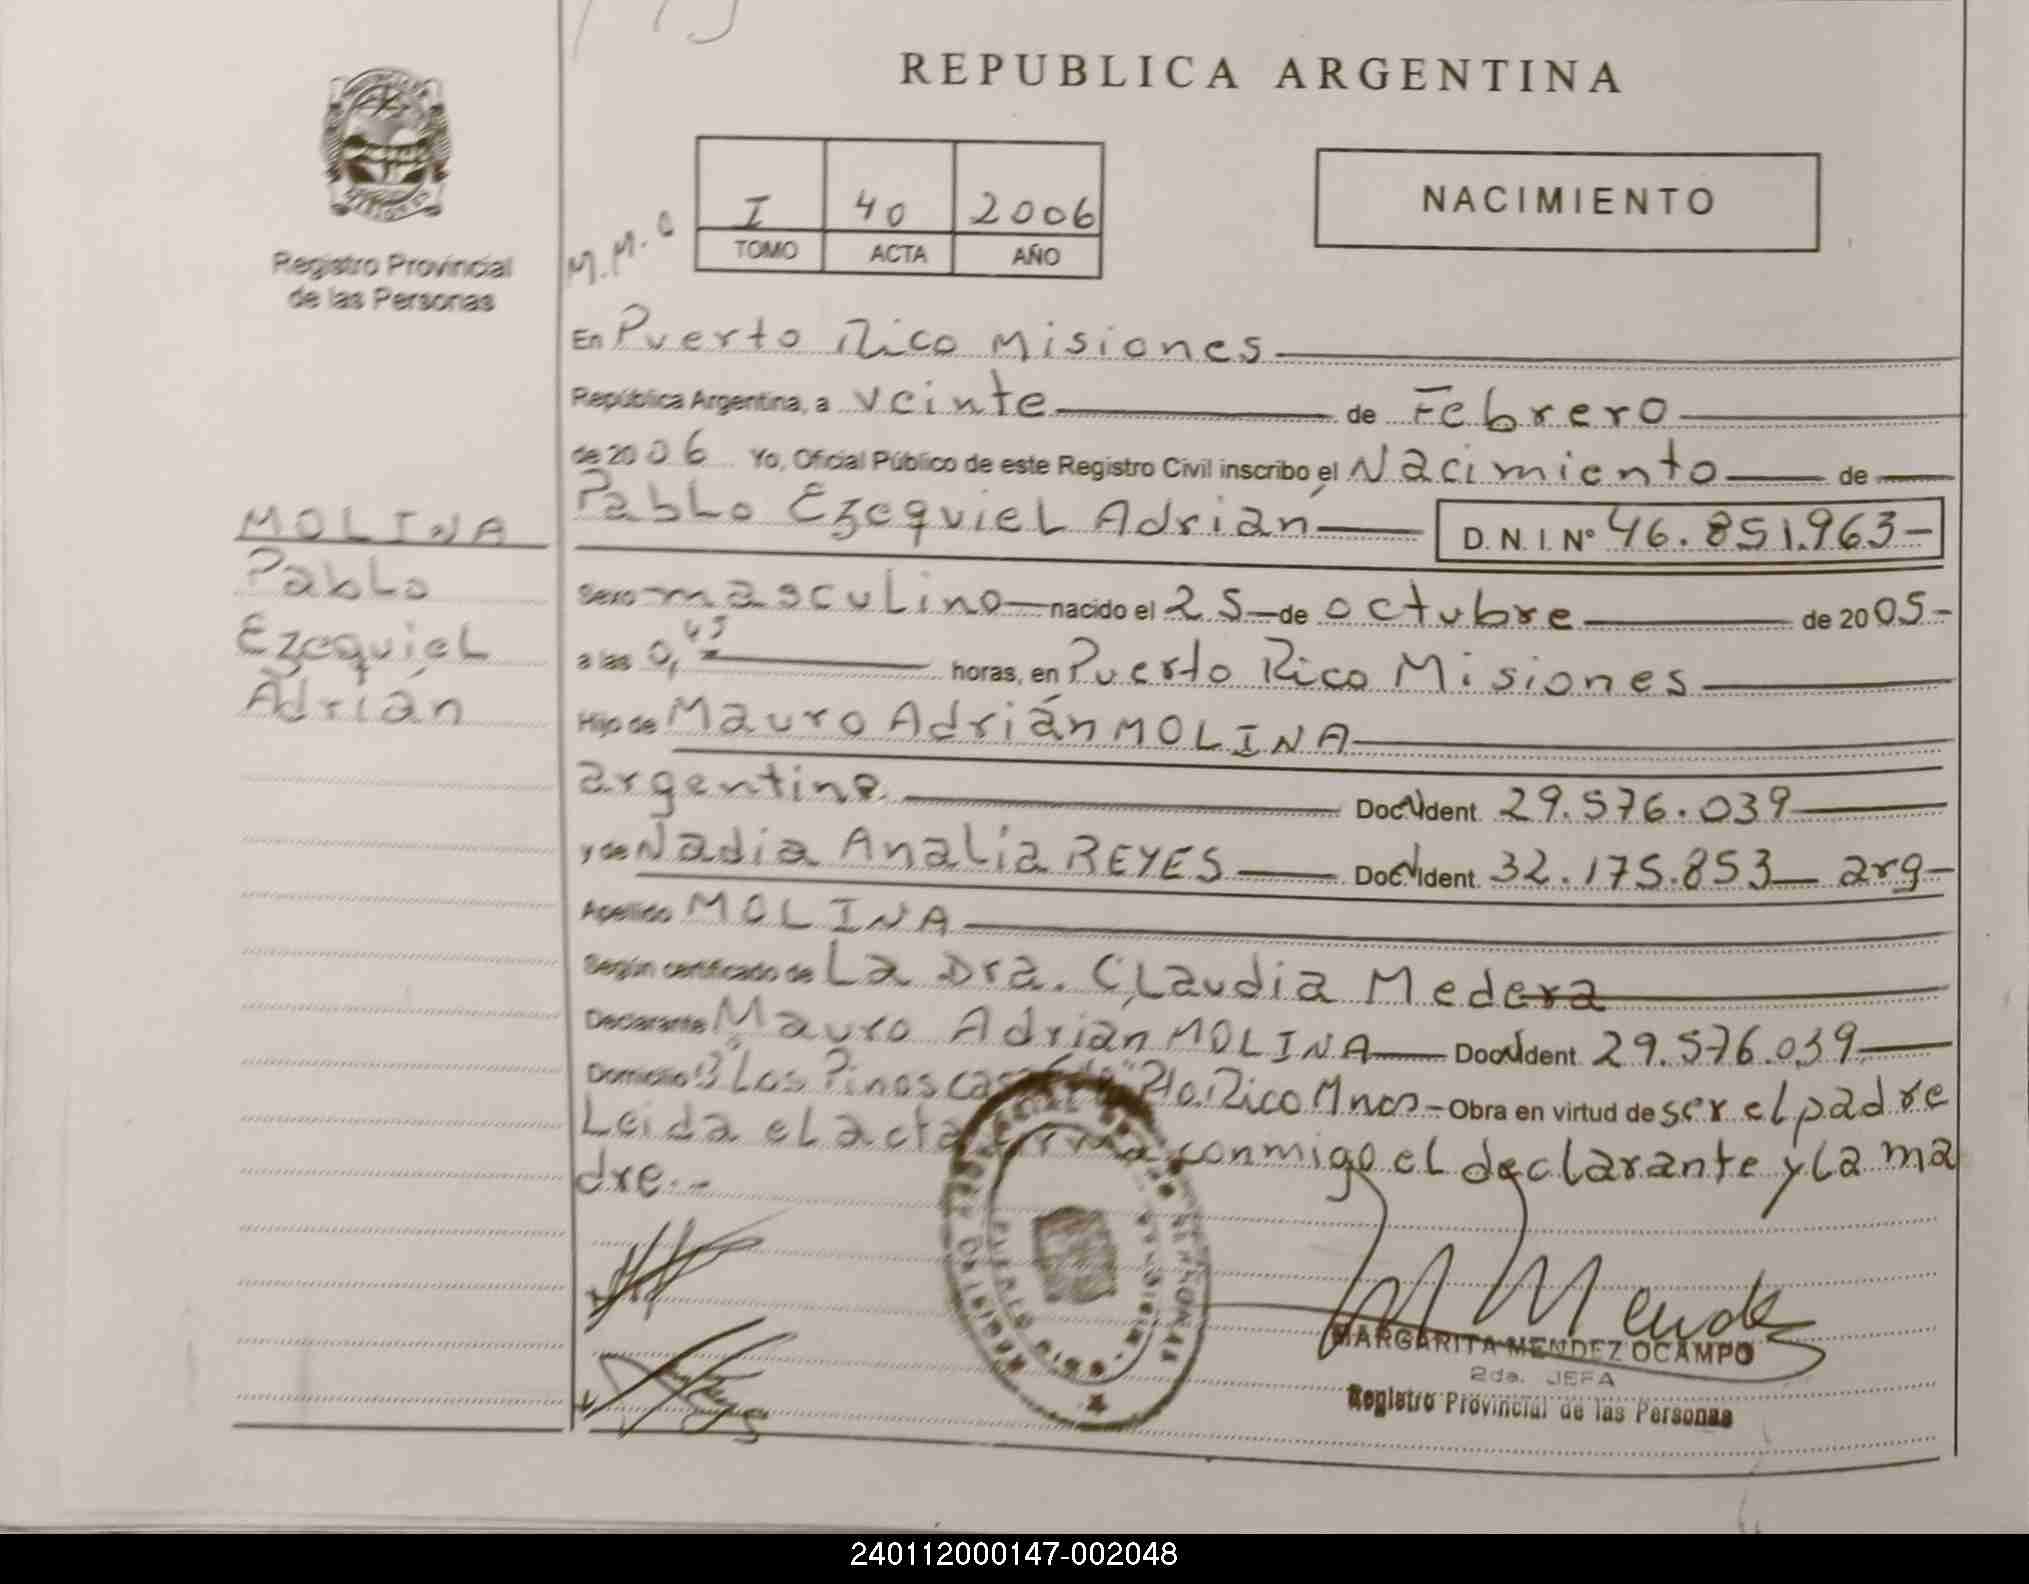 REPUBLICA ARGENTINA
Registro Provincial
de las Personas
M.M.O
I 40 2006
TOMO ACTA AÑO
NACIMIENTO
En Puerto Rico Misiones
República Argentina, a veinte de Febrero
de 2006 Yo, Oficial Público de este Registro Civil inscribo el Nacimiento de
Pablo Ezequiel Adrián D.N.I. Nº 46.851.963-
MOLINA
Pablo
Ezequiel
Adrián
Sexo masculino nacido el 25 de octubre de 2005-
a las 0,45 horas, en Puerto Rico Misiones
Hijo de Mauro Adrián MOLINA
argentino Doc N Ident. 29.576.039
y de Nadia Analía REYES Doc N Ident. 32.175.853 arg-
Apellido MOLINA
Según certificado de La Dra. Claudia Medera
Declarante Mauro Adrián MOLINA Doc N Ident. 29.576.039
Domicilio Bº Los Pinos Pto. Rico Mnes - Obra en virtud de ser el padre
Leida el acta firma conmigo el declarante y la ma
dre.-
M Mendez
MARGARITA MENDEZ OCAMPO
2da. JEFA
Registro Provincial de las Personas
240112000147-002048